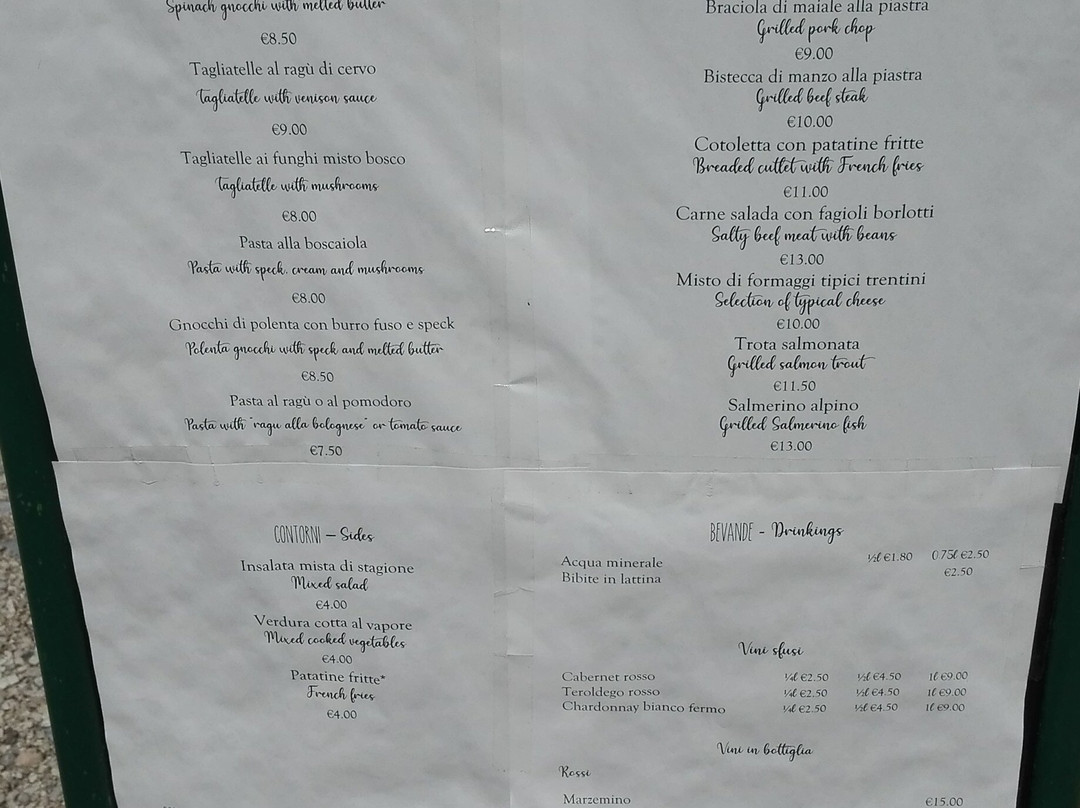 Spinach gnocchi with melted butter
€8.50
Tagliatelle al ragù di cervo
Tagliatelle with venison sauce
€9.00
Tagliatelle ai funghi misto bosco
Tagliatelle with mushrooms
€8.00
Pasta alla boscaiola
Pasta with speck, cream and mushrooms
€8.00
Gnocchi di polenta con burro fuso e speck
Polenta gnocchi with speck and melted butter
€8.50
Pasta al ragù o al pomodoro
Pasta with "ragu alla bolognese" or tomato sauce
€7.50
Braciola di maiale alla piastra
Grilled pork chop
€9.00
Bistecca di manzo alla piastra
Grilled beef steak
€10.00
Cotoletta con patatine fritte
Breaded cutlet with French fries
€11.00
Carne salada con fagioli borlotti
Salty beef meat with beans
€13.00
Misto di formaggi tipici trentini
Selection of typical cheese
€10.00
Trota salmonata
Grilled salmon trout
€11.50
Salmerino alpino
Grilled Salmerino fish
€13.00
CONTORNI – Sides
Insalata mista di stagione
Mixed salad
€4.00
Verdura cotta al vapore
Mixed cooked vegetables
€4.00
Patatine fritte*
French fries
€4.00
BEVANDE - Drinkings
Acqua minerale ½l €1.80 0.75l €2.50
Bibite in lattina €2.50
Vini sfusi
Cabernet rosso ¼l €2.50 ½l €4.50 1l €9.00
Teroldego rosso ¼l €2.50 ½l €4.50 1l €9.00
Chardonnay bianco fermo ¼l €2.50 ½l €4.50 1l €9.00
Vini in bottiglia
Rossi
Marzemino €15.00